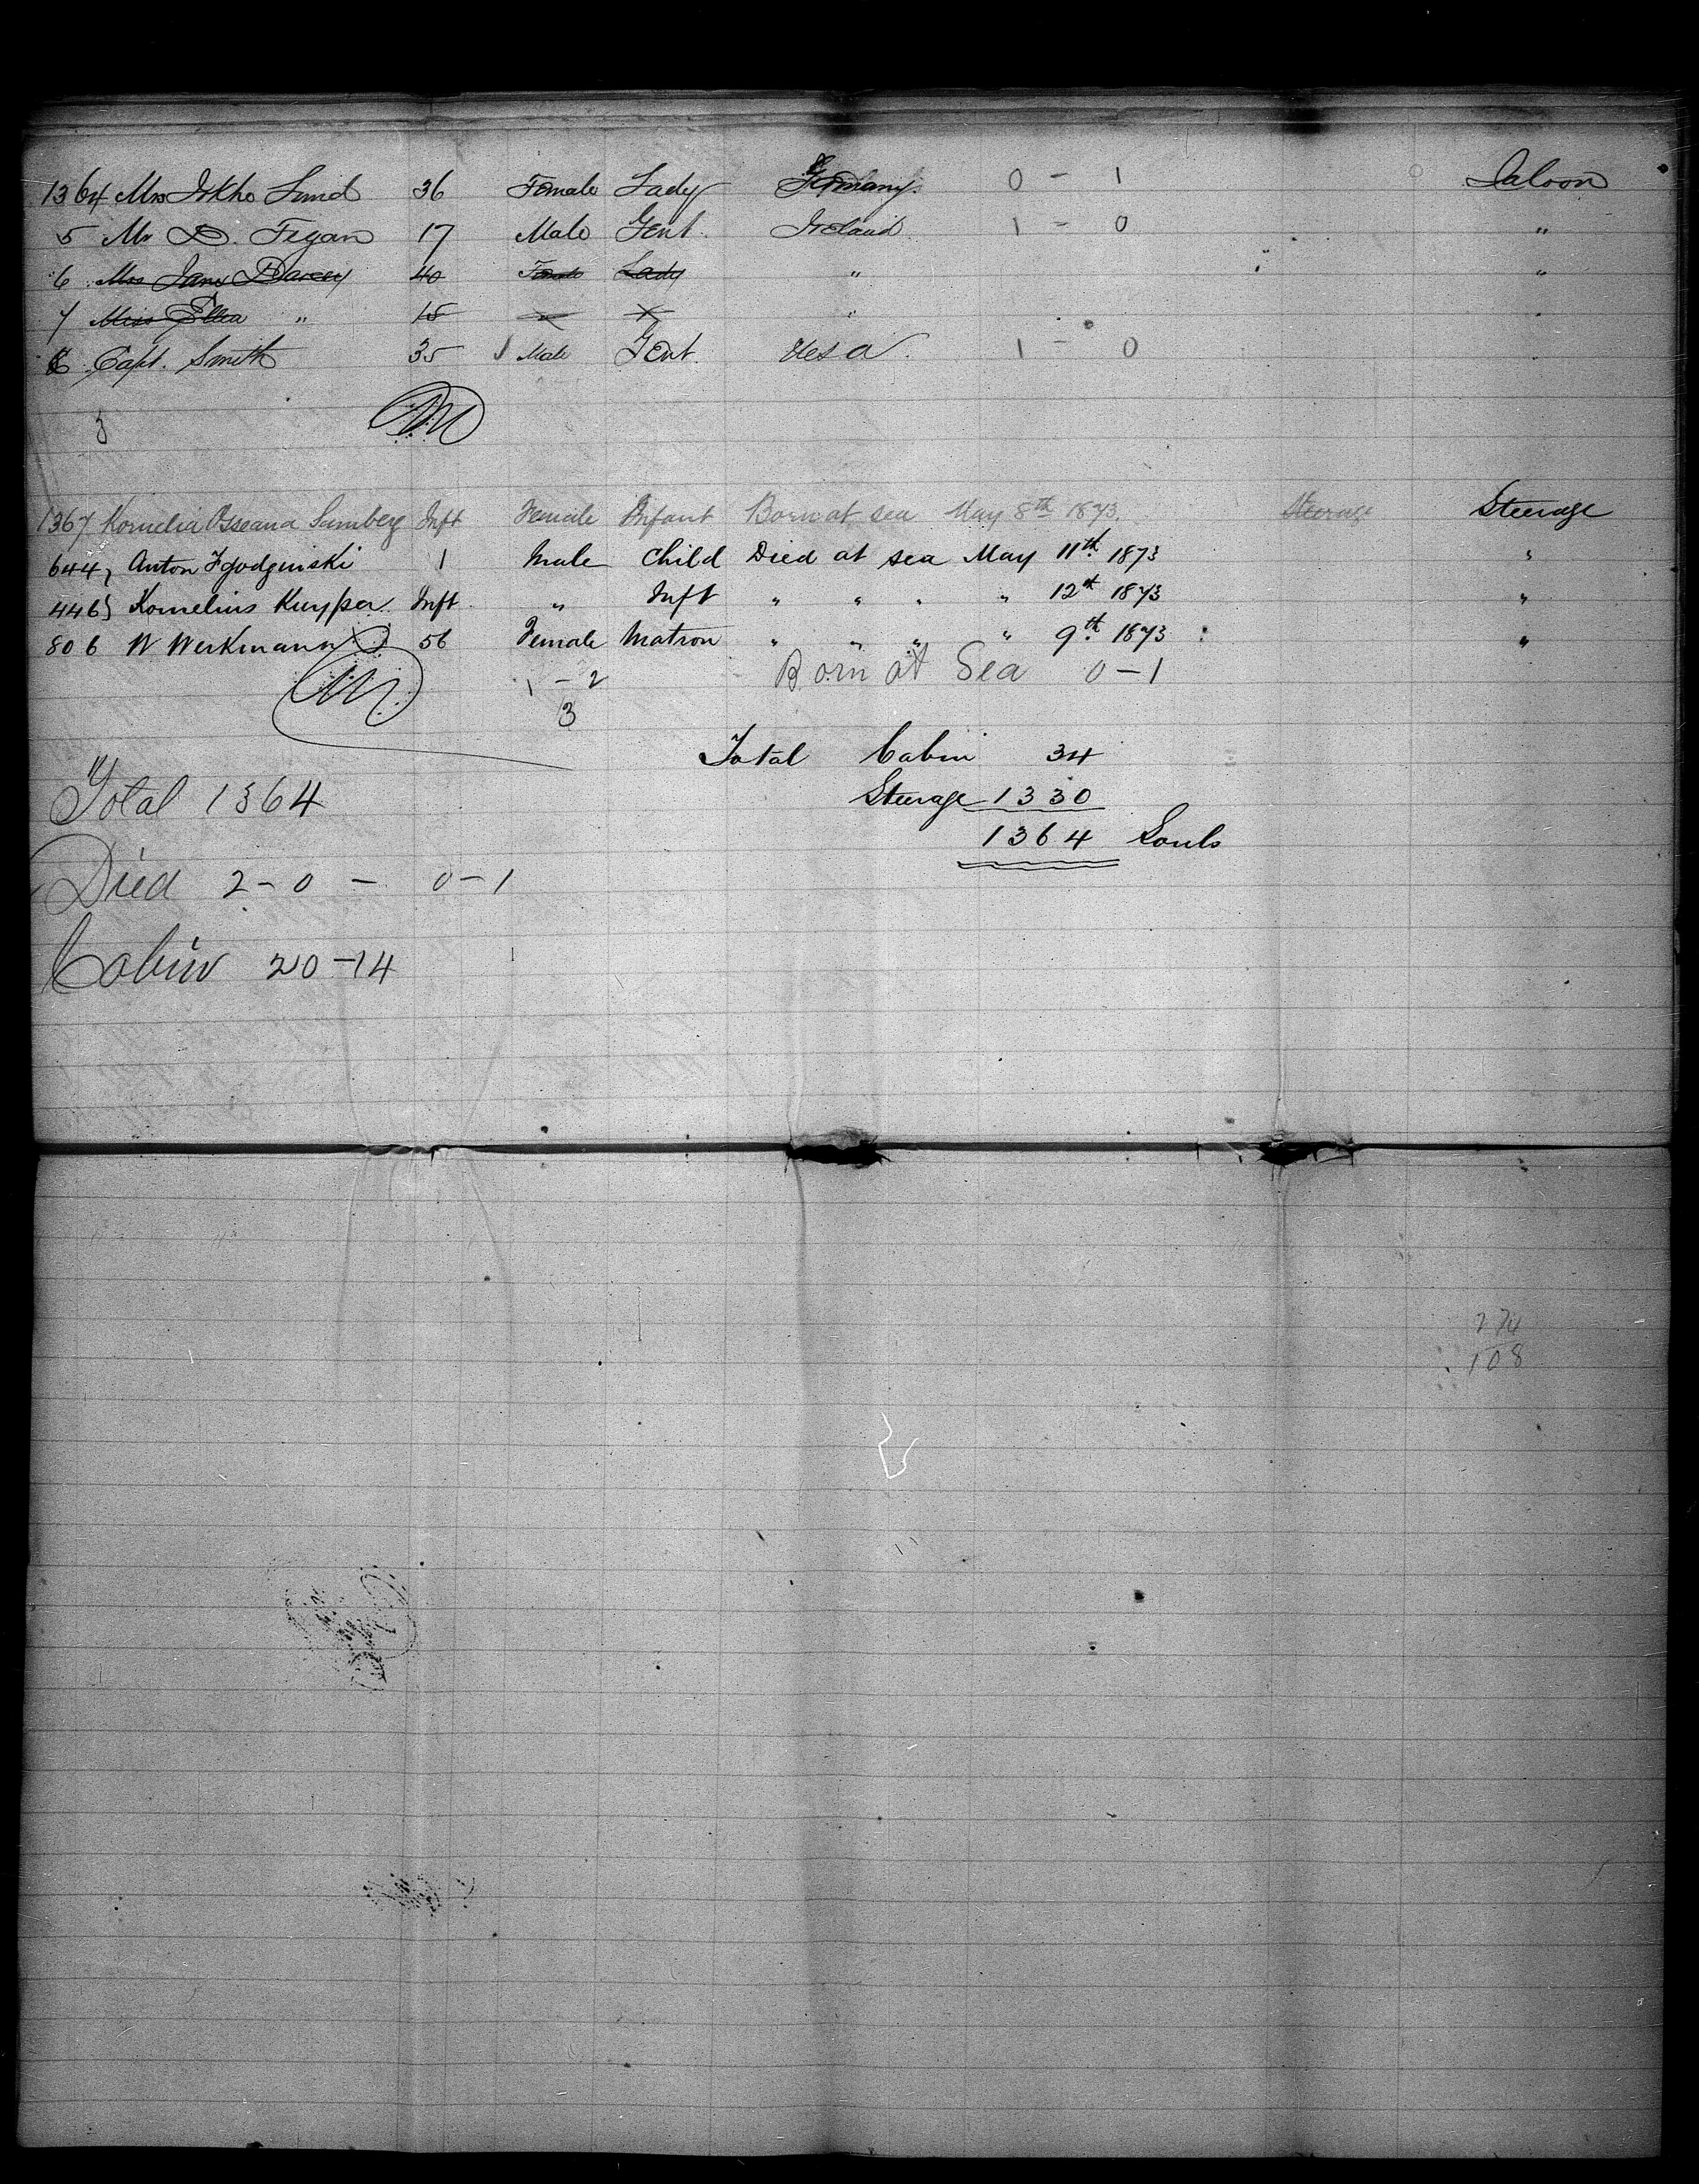 1364 Mrs Lund 36 Female Lady Germany. 0 - 1 Saloon
5 Mr D. Fegan 17 Male Gent. Ireland 1 - 0 "
6 Mrs Jane Darcey 40 Female Lady " "
7 Miss Ella " 15 " "
Capt. Smith 35 Male Gent. U S a. 1 - 0
3
1367 Kornelia Osseana Sumberg Inft Female Infant Born at sea May 8th 1873 Steerage Steerage
644 Anton 1 Male Child Died at sea May 11th 1873 "
446 Kornelius Kuyper Inft " Inft " " " " 12th 1873 "
806 W Werkmann 56 Female Matron " " " " 9th 1873 "
1 - 2 Born at Sea 0 - 1
3
Total Cabin 34
Total 1364 Steerage 1330
1364 Souls
Died 2 - 0 - 0 - 1
Cabin 20 - 14
274
108